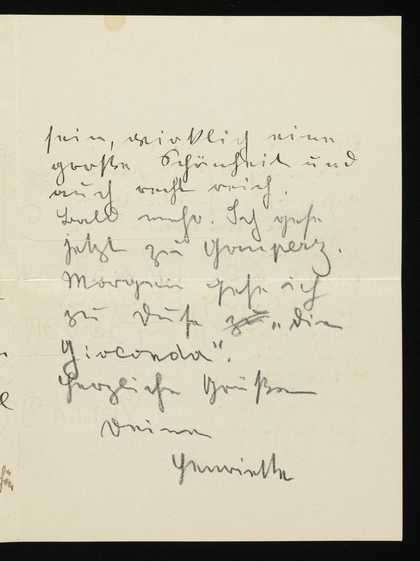 sein, wirklich eine
große Schönheit und
auch recht reich.
Bald mehr. Ich gehe
jetzt zu Gomperz.
Morgen gehe ich
zu Duse zu „die
Gioconda".
Herzliche Grüße
Deine
Henriette